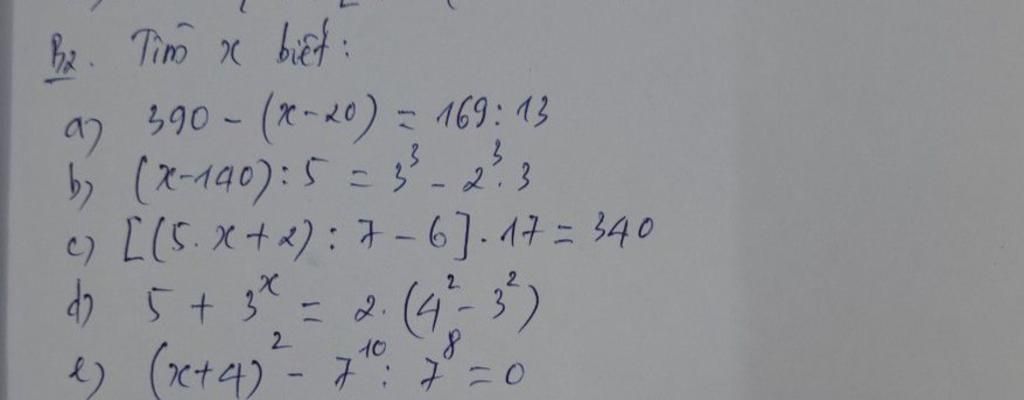 B2. Tìm x biết:
a) 390 - (x-20) = 169:13
b) (x-140):5 = 3³ - 2³.3
c) [(5.x+2):7-6].17 = 340
d) 5 + 3ˣ = 2.(4²-3²)
e) (x+4)² - 7¹⁰:7⁸ = 0